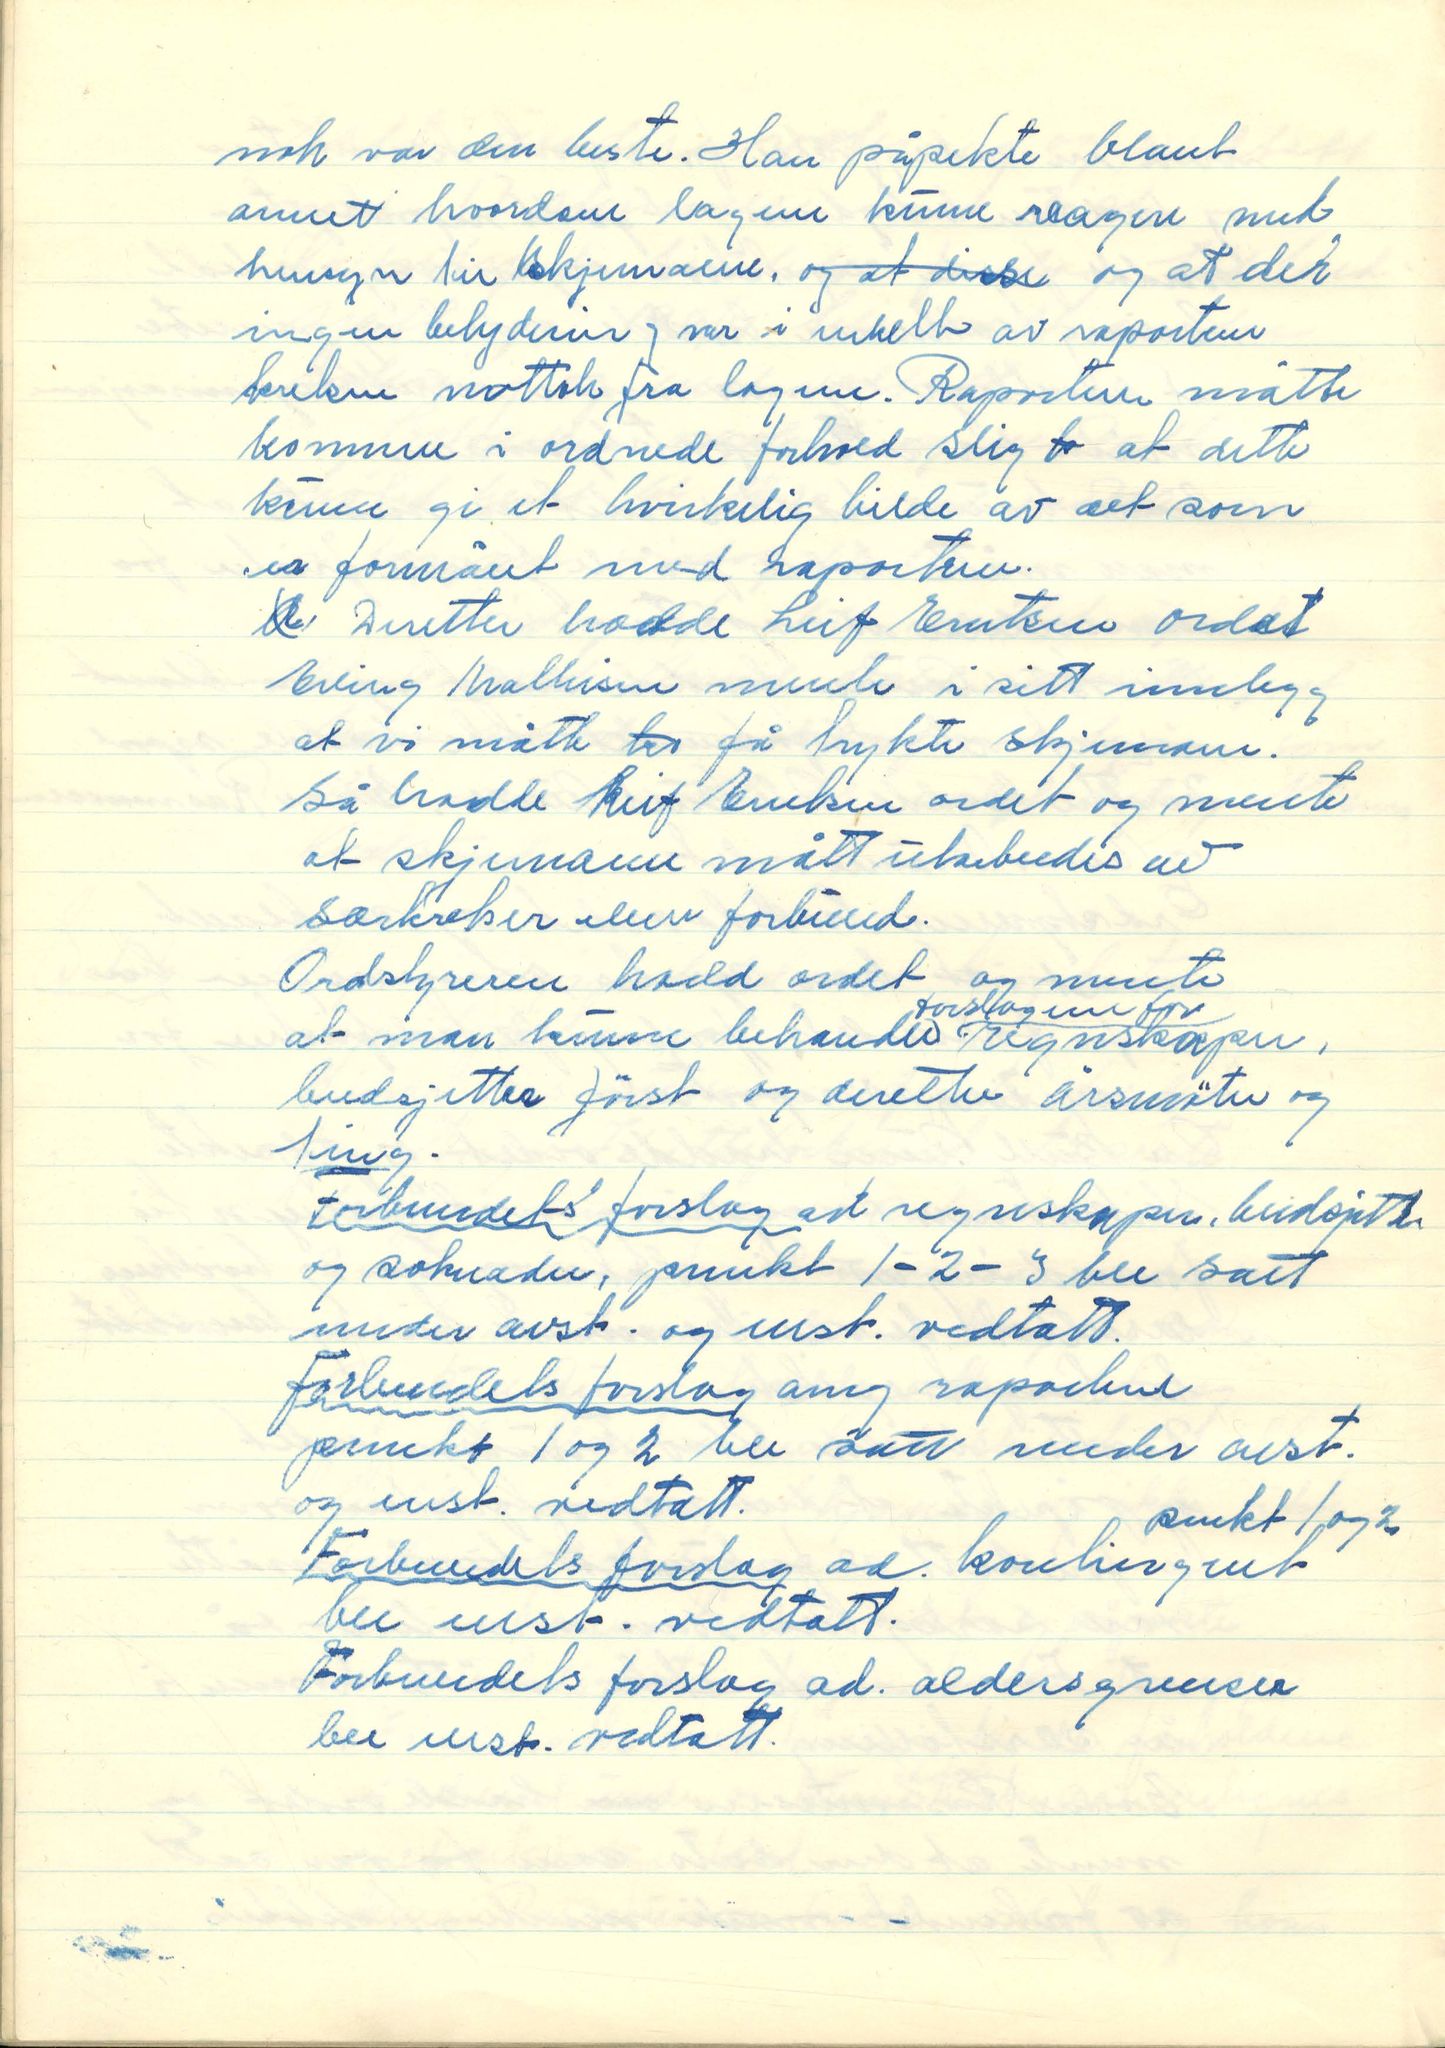 nok var den beste. Han påpekte blant
annet hvordan lagene kunne reagere med
hensyn til skjemaene. og at disse og at der
ingen betydning var i enkelte av raportene
kretsen mottok fra lagene. Raportene måtte
komme i ordnede forhold slig at dette
kunne gi et hvirkelig bilde av det som
er formået med raportene.
Deretter hadde Leif Eriksen ordet
Erling Mathisen mente i sitt innlegg
at vi måtte få trykte skjemaer.
Så hadde Leif Eriksen ordet og mente
at skjemaene mått utarbeides av
særkretser eller forbund.
Ordstyreren hadd ordet og mente
at man kunne behandle forslagene for regnskaper,
budsjetter först og deretter årsmöter og
ting.
Forbundets forslag ad regnskaper, budsjetter
og soknader, punkt 1-2-3 ble satt
under avst. og enst. vedtatt.
Forbundets forslag ang raportene
punkt 1 og 2 ble satt under avst.
og enst. vedtatt.
Forbundets forslag ad. kontingent punkt 1 og 2
ble enst. vedtatt.
Forbundets forslag ad. aldersgrenser
ble enst. vedtatt.